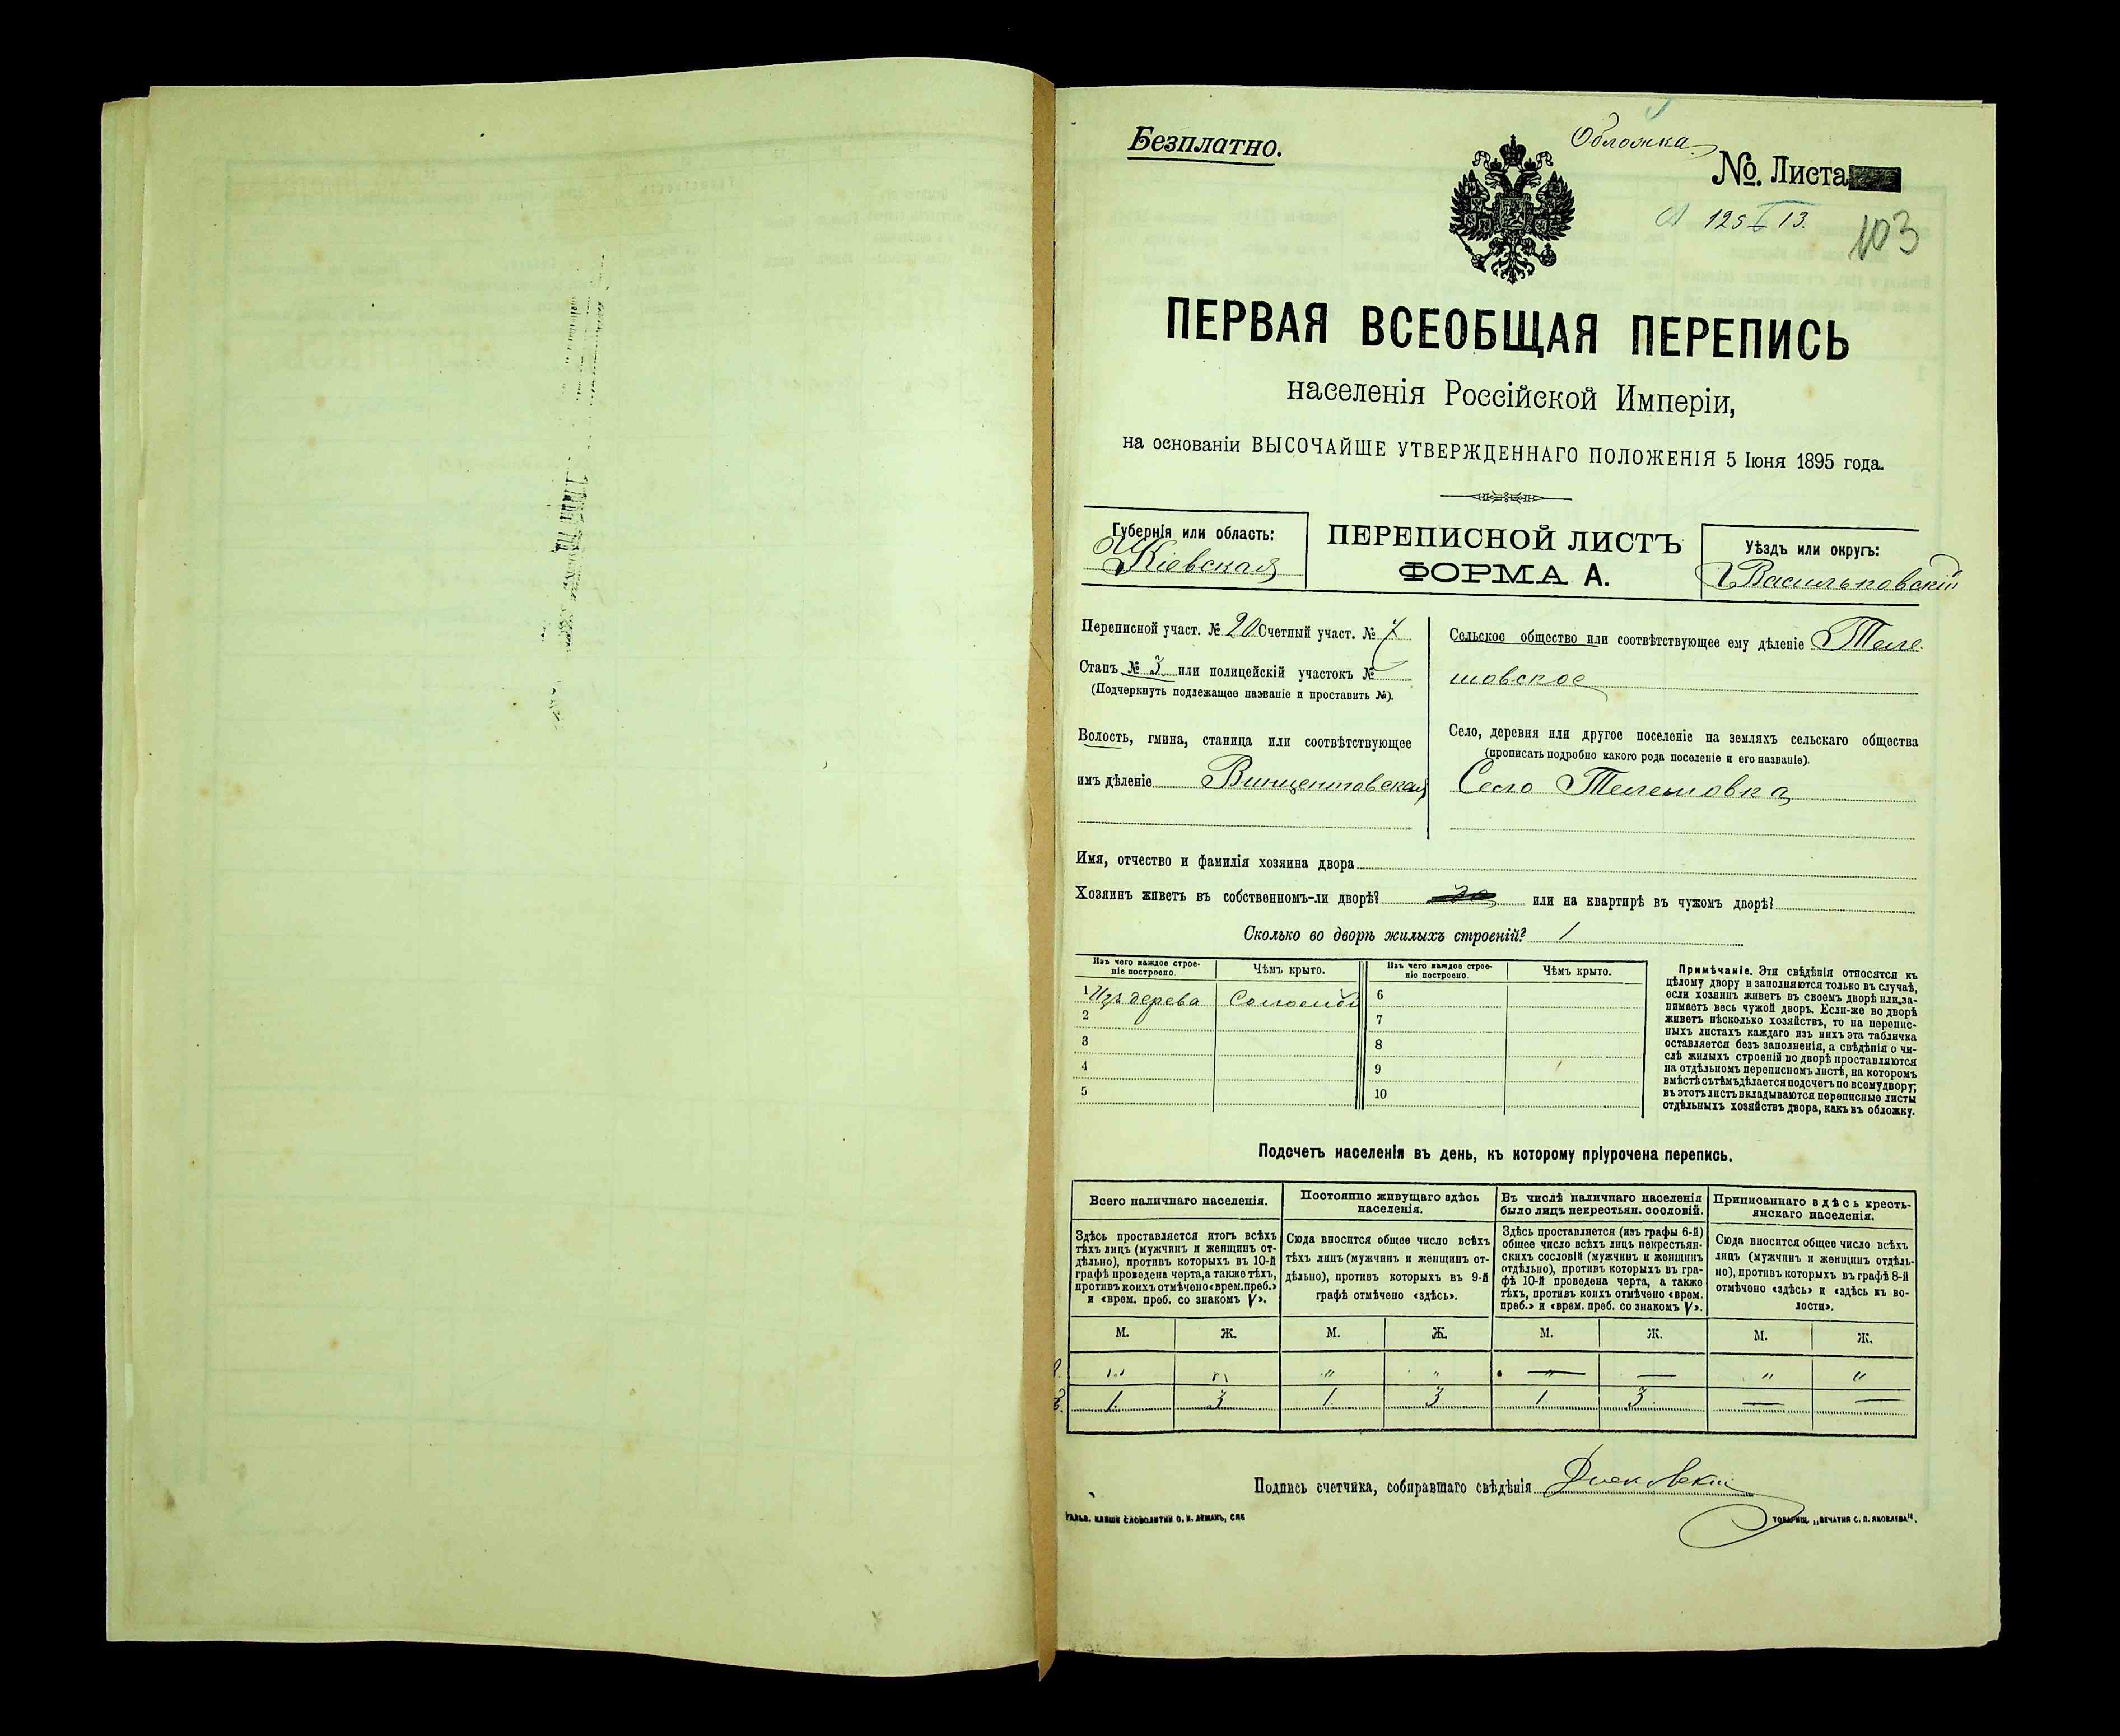 Безплатно.
Обложка
№. Листа
125 13.
103
ПЕРВАЯ ВСЕОБЩАЯ ПЕРЕПИСЬ
населенія Россійской Имперіи,
на основаніи ВЫСОЧАЙШЕ УТВЕРЖДЕННАГО ПОЛОЖЕНІЯ 5 Іюня 1895 года.
Губернія или область:
Кіевская
ПЕРЕПИСНОЙ ЛИСТЪ
ФОРМА А.
Уѣздъ или округъ:
Васильковскій
Переписной участ. № 20 Счетный участ. № 7
Станъ № 3 или полицейскій участокъ №
(Подчеркнуть подлежащее названіе и проставить №).
Волость, гмина, станица или соотвѣтствующее
имъ дѣленіе Винцентовская
Сельское общество или соотвѣтствующее ему дѣленіе Теле
шовское
Село, деревня или другое поселеніе на земляхъ сельскаго общества
(прописать подробно какого рода поселеніе и его названіе).
Село Телешовка
Имя, отчество и фамилія хозяина двора
Хозяинъ живетъ въ собственномъ-ли дворѣ? или на квартирѣ въ чужомъ дворѣ?
Сколько во дворѣ жилыхъ строеній? 1
Изъ чего каждое строе-
ніе построено.
Чѣмъ крыто.
Изъ чего каждое строе-
ніе построено.
Чѣмъ крыто.
1 Изъ дерева Соломой 6
2 7
3 8
4 9
5 10
Примѣчаніе. Эти свѣдѣнія относятся къ
цѣлому двору и заполняются только въ случаѣ,
если хозяинъ живетъ въ своемъ дворѣ или за-
нимаетъ весь чужой дворъ. Если-же во дворѣ
живетъ нѣсколько хозяйствъ, то на перепис-
ныхъ листахъ каждаго изъ нихъ эта табличка
оставляется безъ заполненія, а свѣдѣнія о чи-
слѣ жилыхъ строеній во дворѣ проставляются
на отдѣльномъ переписномъ листѣ, на которомъ
вмѣстѣ съ тѣмъ дѣлается подсчетъ по всему двору;
въ этотъ листъ вкладываются переписные листы
отдѣльныхъ хозяйствъ двора, какъ въ обложку.
Подсчетъ населенія въ день, къ которому пріурочена перепись.
Всего наличнаго населенія.
Здѣсь проставляется итогъ всѣхъ
тѣхъ лицъ (мужчинъ и женщинъ от-
дѣльно), противъ которыхъ въ 10-й
графѣ проведена черта, а также тѣхъ,
противъ коихъ отмѣчено «врем. преб.»
и «врем. преб. со знакомъ V».
Постоянно живущаго здѣсь
населенія.
Сюда вносится общее число всѣхъ
тѣхъ лицъ (мужчинъ и женщинъ от-
дѣльно), противъ которыхъ въ 9-й
графѣ отмѣчено «здѣсь».
Въ числѣ наличнаго населенія
было лицъ некрестьян. сословій.
Здѣсь проставляется (изъ графы 6-й)
общее число всѣхъ лицъ некрестьян-
скихъ сословій (мужчинъ и женщинъ
отдѣльно), противъ которыхъ въ гра-
фѣ 10-й проведена черта, а также
тѣхъ, противъ коихъ отмѣчено «врем.
преб.» и «врем. преб. со знакомъ V».
Приписаннаго здѣсь кресть-
янскаго населенія.
Сюда вносится общее число всѣхъ
лицъ (мужчинъ и женщинъ отдѣль-
но), противъ которыхъ въ графѣ 8-й
отмѣчено «здѣсь» и «здѣсь къ во-
лости».
М. Ж. М. Ж. М. Ж. М. Ж.
" " " " " — " "
1. 3 1. 3 1 3 — —
Подпись счетчика, собиравшаго свѣдѣнія
ГАЛЬВ. КЛИШЕ СЛОВОЛИТНИ О. И. ЛЕМАНЪ, СПБ
ТОВАРИЩ. „ПЕЧАТНЯ С. П. ЯКОВЛЕВА".